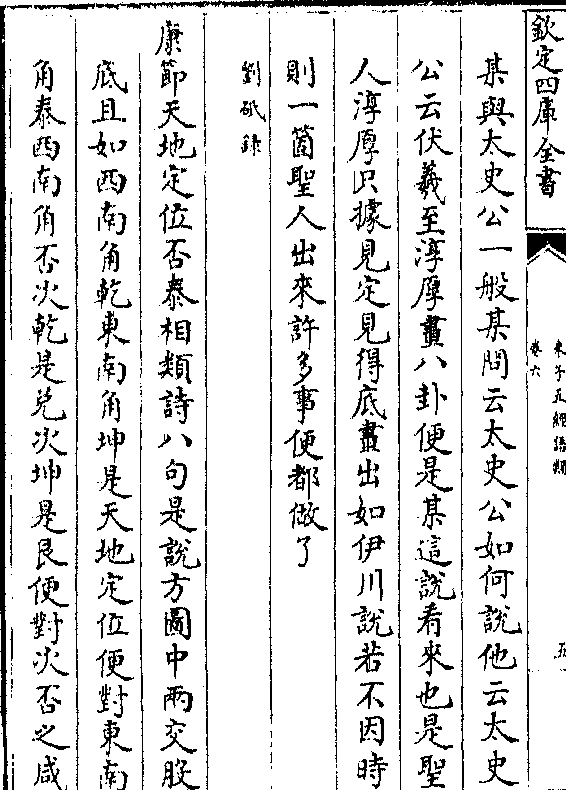 欽定四庫全書
朱子五經語類
卷六
五
某與太史公一般某問云太史公如何說他云太史
公云伏羲至淳厚畫八卦便是某這說看來也是聖
人淳厚只據見定見得底畫出如伊川說若不因時
則一箇聖人出來許多事便都做了
劉砥錄
康節天地定位否泰相類詩八句是說方圖中兩交股
底且如西南角乾東南角坤是天地定位便對東南
角泰西南角否次乾是兌次坤是艮便對次否之咸